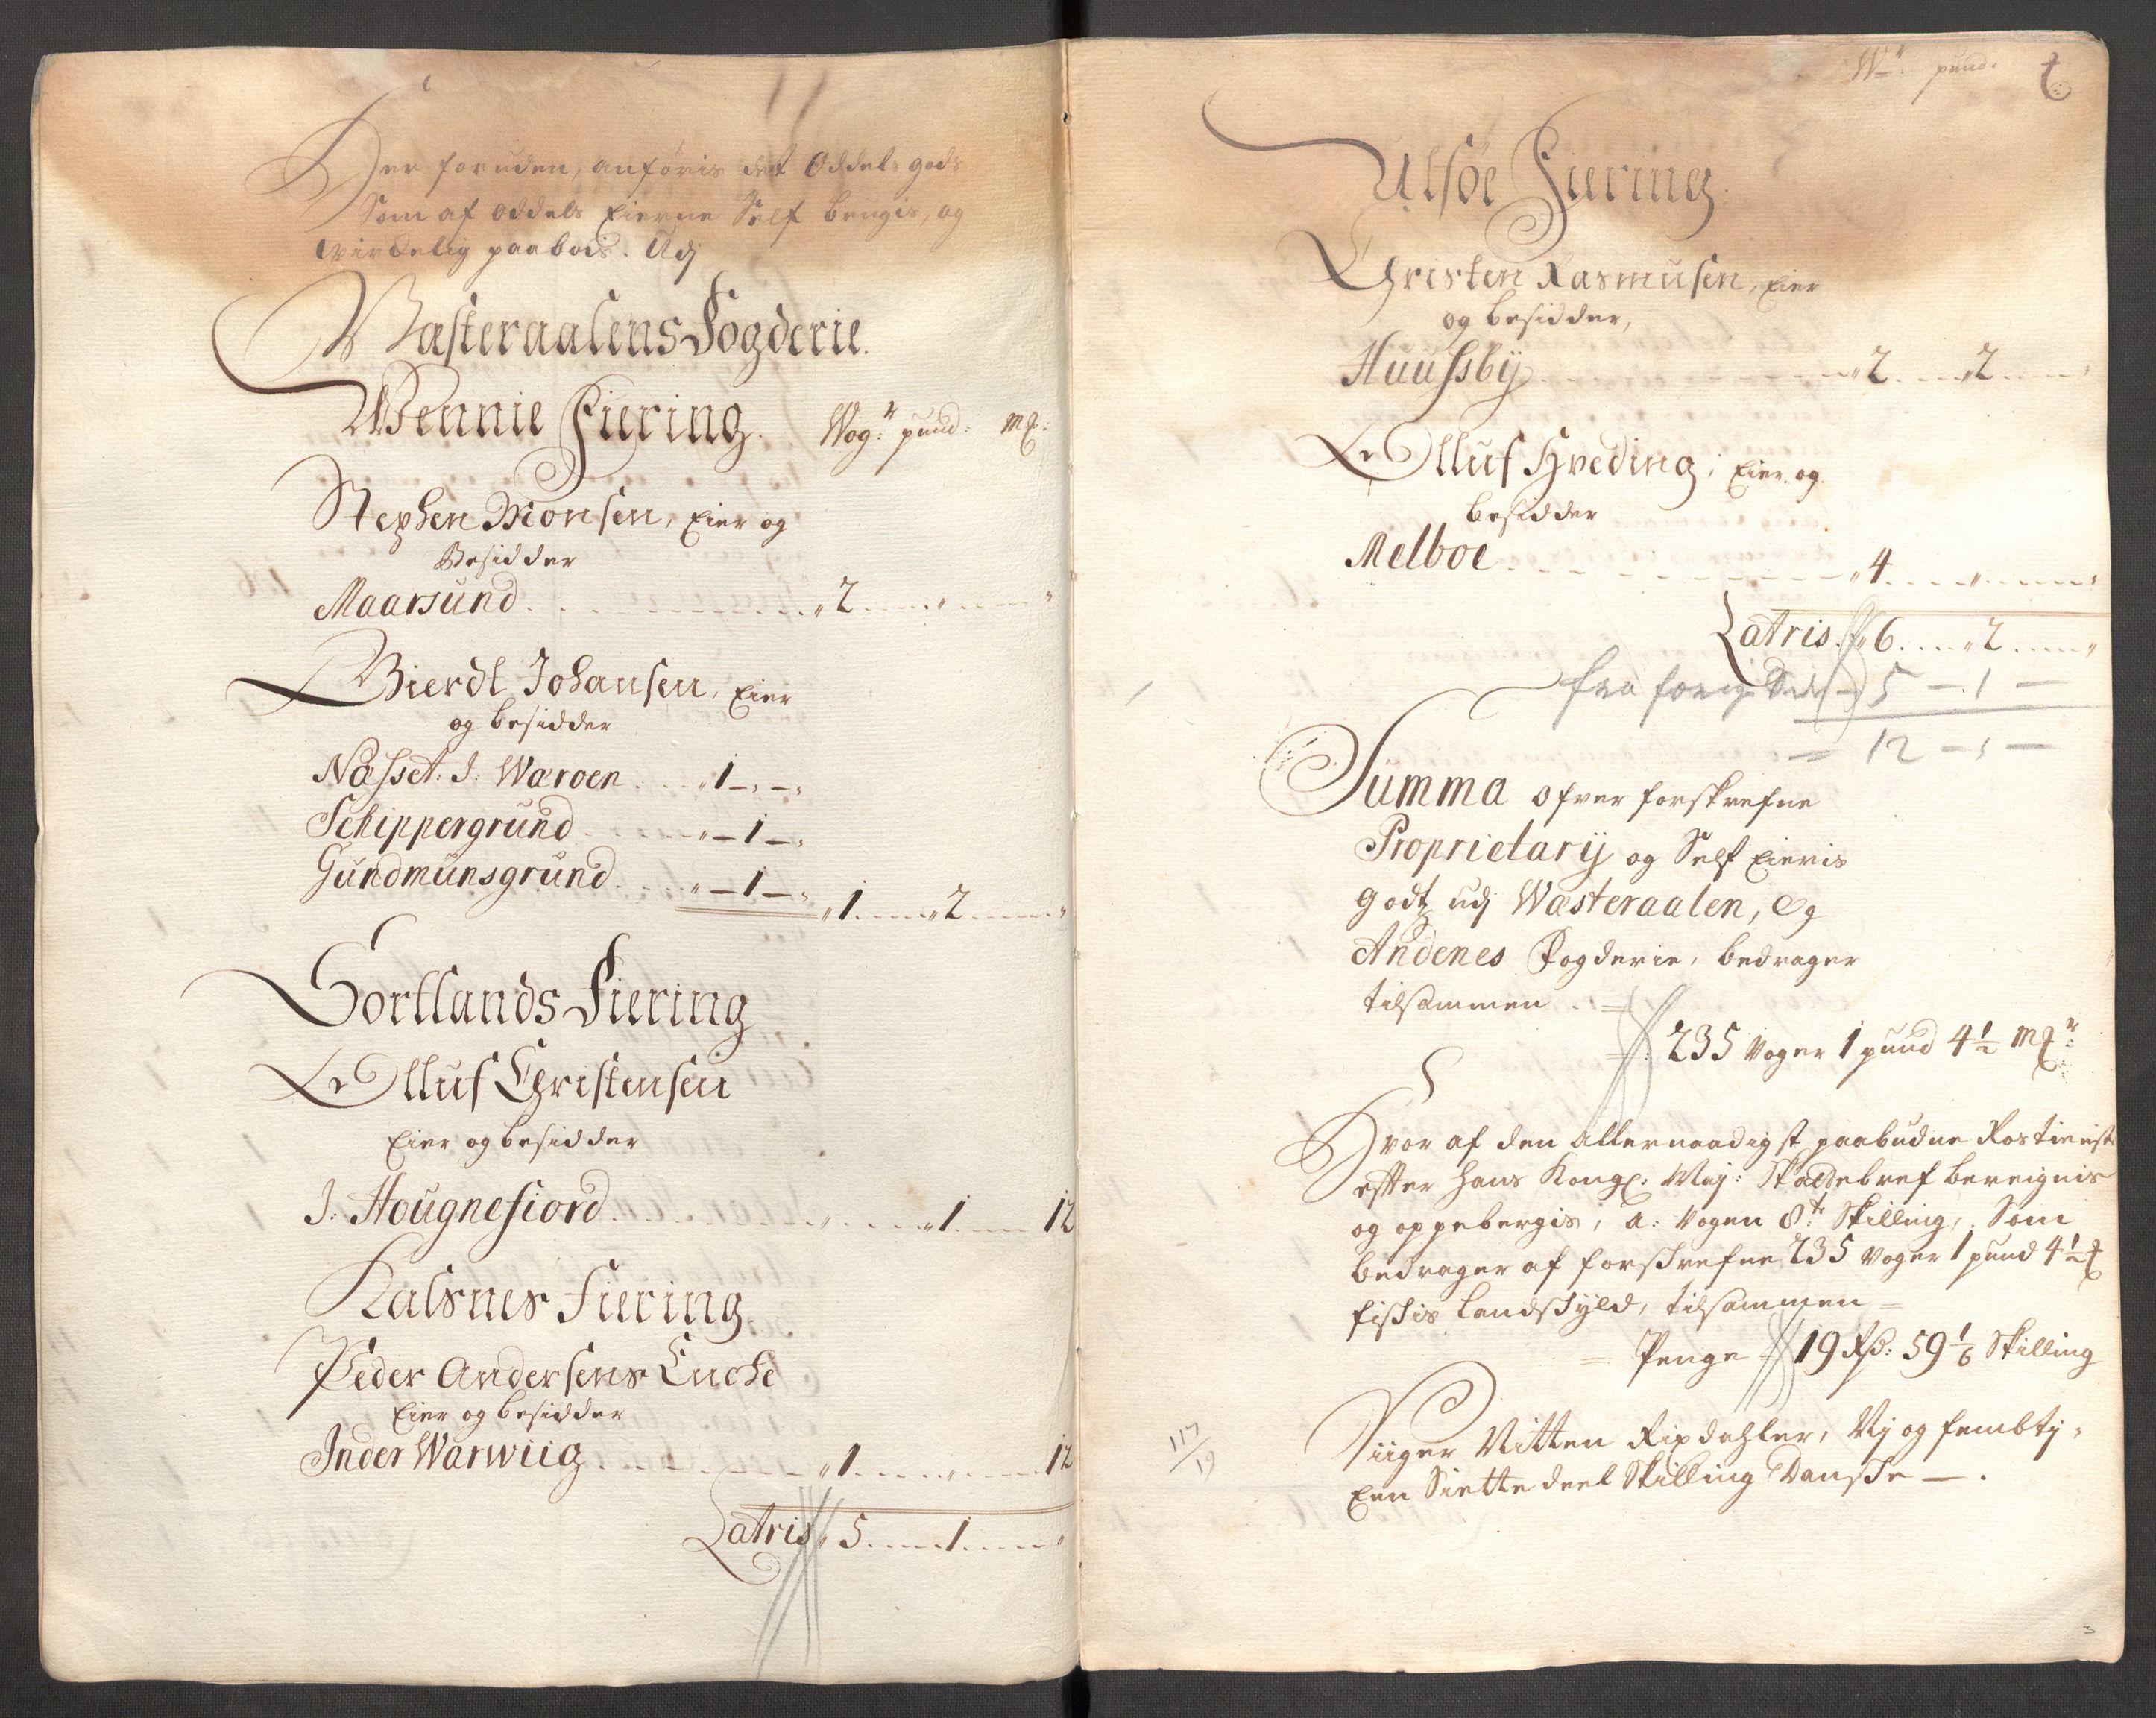 Her foruden, anføris det Oddels gods
Som af oddels Eierne Self brugis, og
wirkelig paaboes. Udj
Wæsteraalens Fogderie.
Wennie Fiering. Wog:r pund: mƺ:
Stephen Monsen, Eier og
Besidder
Maarsund . . . . „ 2 . . . „ . . . „
Bierdt Johansen, Eier
og besidder
Næsset. J. Wæroen . . . „ 1 – „ – „
Schippergrund . . . „ – 1 – „
Gundmunsgrund . . . „ – 1 – „
„ 1 . . . „ 2 . . . „
Sortlands Fiering
Olluf Christensen
Eier og besidder
J: Hougnefiord . . . „ . . . „ 1 . . . 12
Kalsnes Fiering
Peder Andersens Enche
Eier og besidder
Inder Warwiig . . . „ 1 . . . „ . . . 12
Latris „ 5 . . . 1 . . . „
W:r pund.
Ulsøe Fiering.
Christen Rasmusen, Eier
og besidder,
Huussbÿ . . . „ 2 . . . „ 2 . . . „
Olluf Hveding, Eier og
besidder
Melboe . . . „ 4 . . . „ . . . „
Latris. „ 6 . . . „ 2 . . . „
fra forrige Side – 5 – 1 –
– 12 – „ –
Summa ofver forskrefne
Proprietarij og Self Eieris
godtz udj Wæsteraalen, Og
Andenes Fogderie, bedrager
tilsammen . =
= : 235 Voger 1 pund 4½ mƺr:
Hvor af den allernaadigst paabudne Rostieniste
efter Hans Kongl: Maj: Skattebref beregnis
og oppebergis, a: Vogen 8:te Skilling, Som
bedrager af forschrefne 235 Voger 1 pund 4½ ƺ
fischis Landschyld, tilsammen =
= Penge = 19 Rd: 59 1/6 Skilling
Siiger Nitten Rixdahler, Nj og fembtj,
Een Siette deel Skilling Dansche – .
117
/19